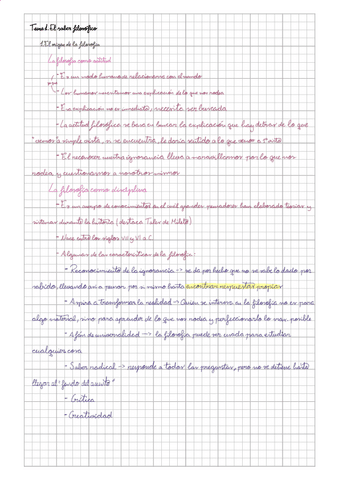 Tema 1. El saber filosófico
1. El origen de la filosofía
La filosofía como actitud
- Es un modo humano de relacionarse con el mundo
- Los humanos necesitamos una explicación de lo que nos rodea
- Esa explicación no es inmediata, necesita ser buscada
- La actitud filosófica se basa en buscar la explicación que hay detrás de lo que
vemos a simple vista, si se encuentra, le daría sentido a lo que vemos
- El reconocer nuestra ignorancia lleva a maravillarnos por lo que nos
rodea y cuestionarnos a nosotros mismos
La filosofía como disciplina
- Es un campo de conocimientos en el cual grandes pensadores han elaborado teorías y
sistemas durante la historia (destaca Tales de Mileto)
- Nace entre los siglos VII y VI a.C.
- Algunas de sus características de la filosofía:
- Reconocimiento de la ignorancia -> se da por hecho que no se sabe lo dado por
sabido, llegando a pensar por si mismo hasta encontrar respuestas propias
- Aspira a transformar la realidad -> Quien se interesa en la filosofía no es para
algo material, sino para aprender de lo que nos rodea y perfeccionarlo lo más posible
- Afán de universalidad -> la filosofía puede ser usada para estudiar
cualquier cosa
- Saber radical -> responde a todas las preguntas, pero no se detiene hasta
llegar al "fondo del asunto"
- Crítica
- Creatividad